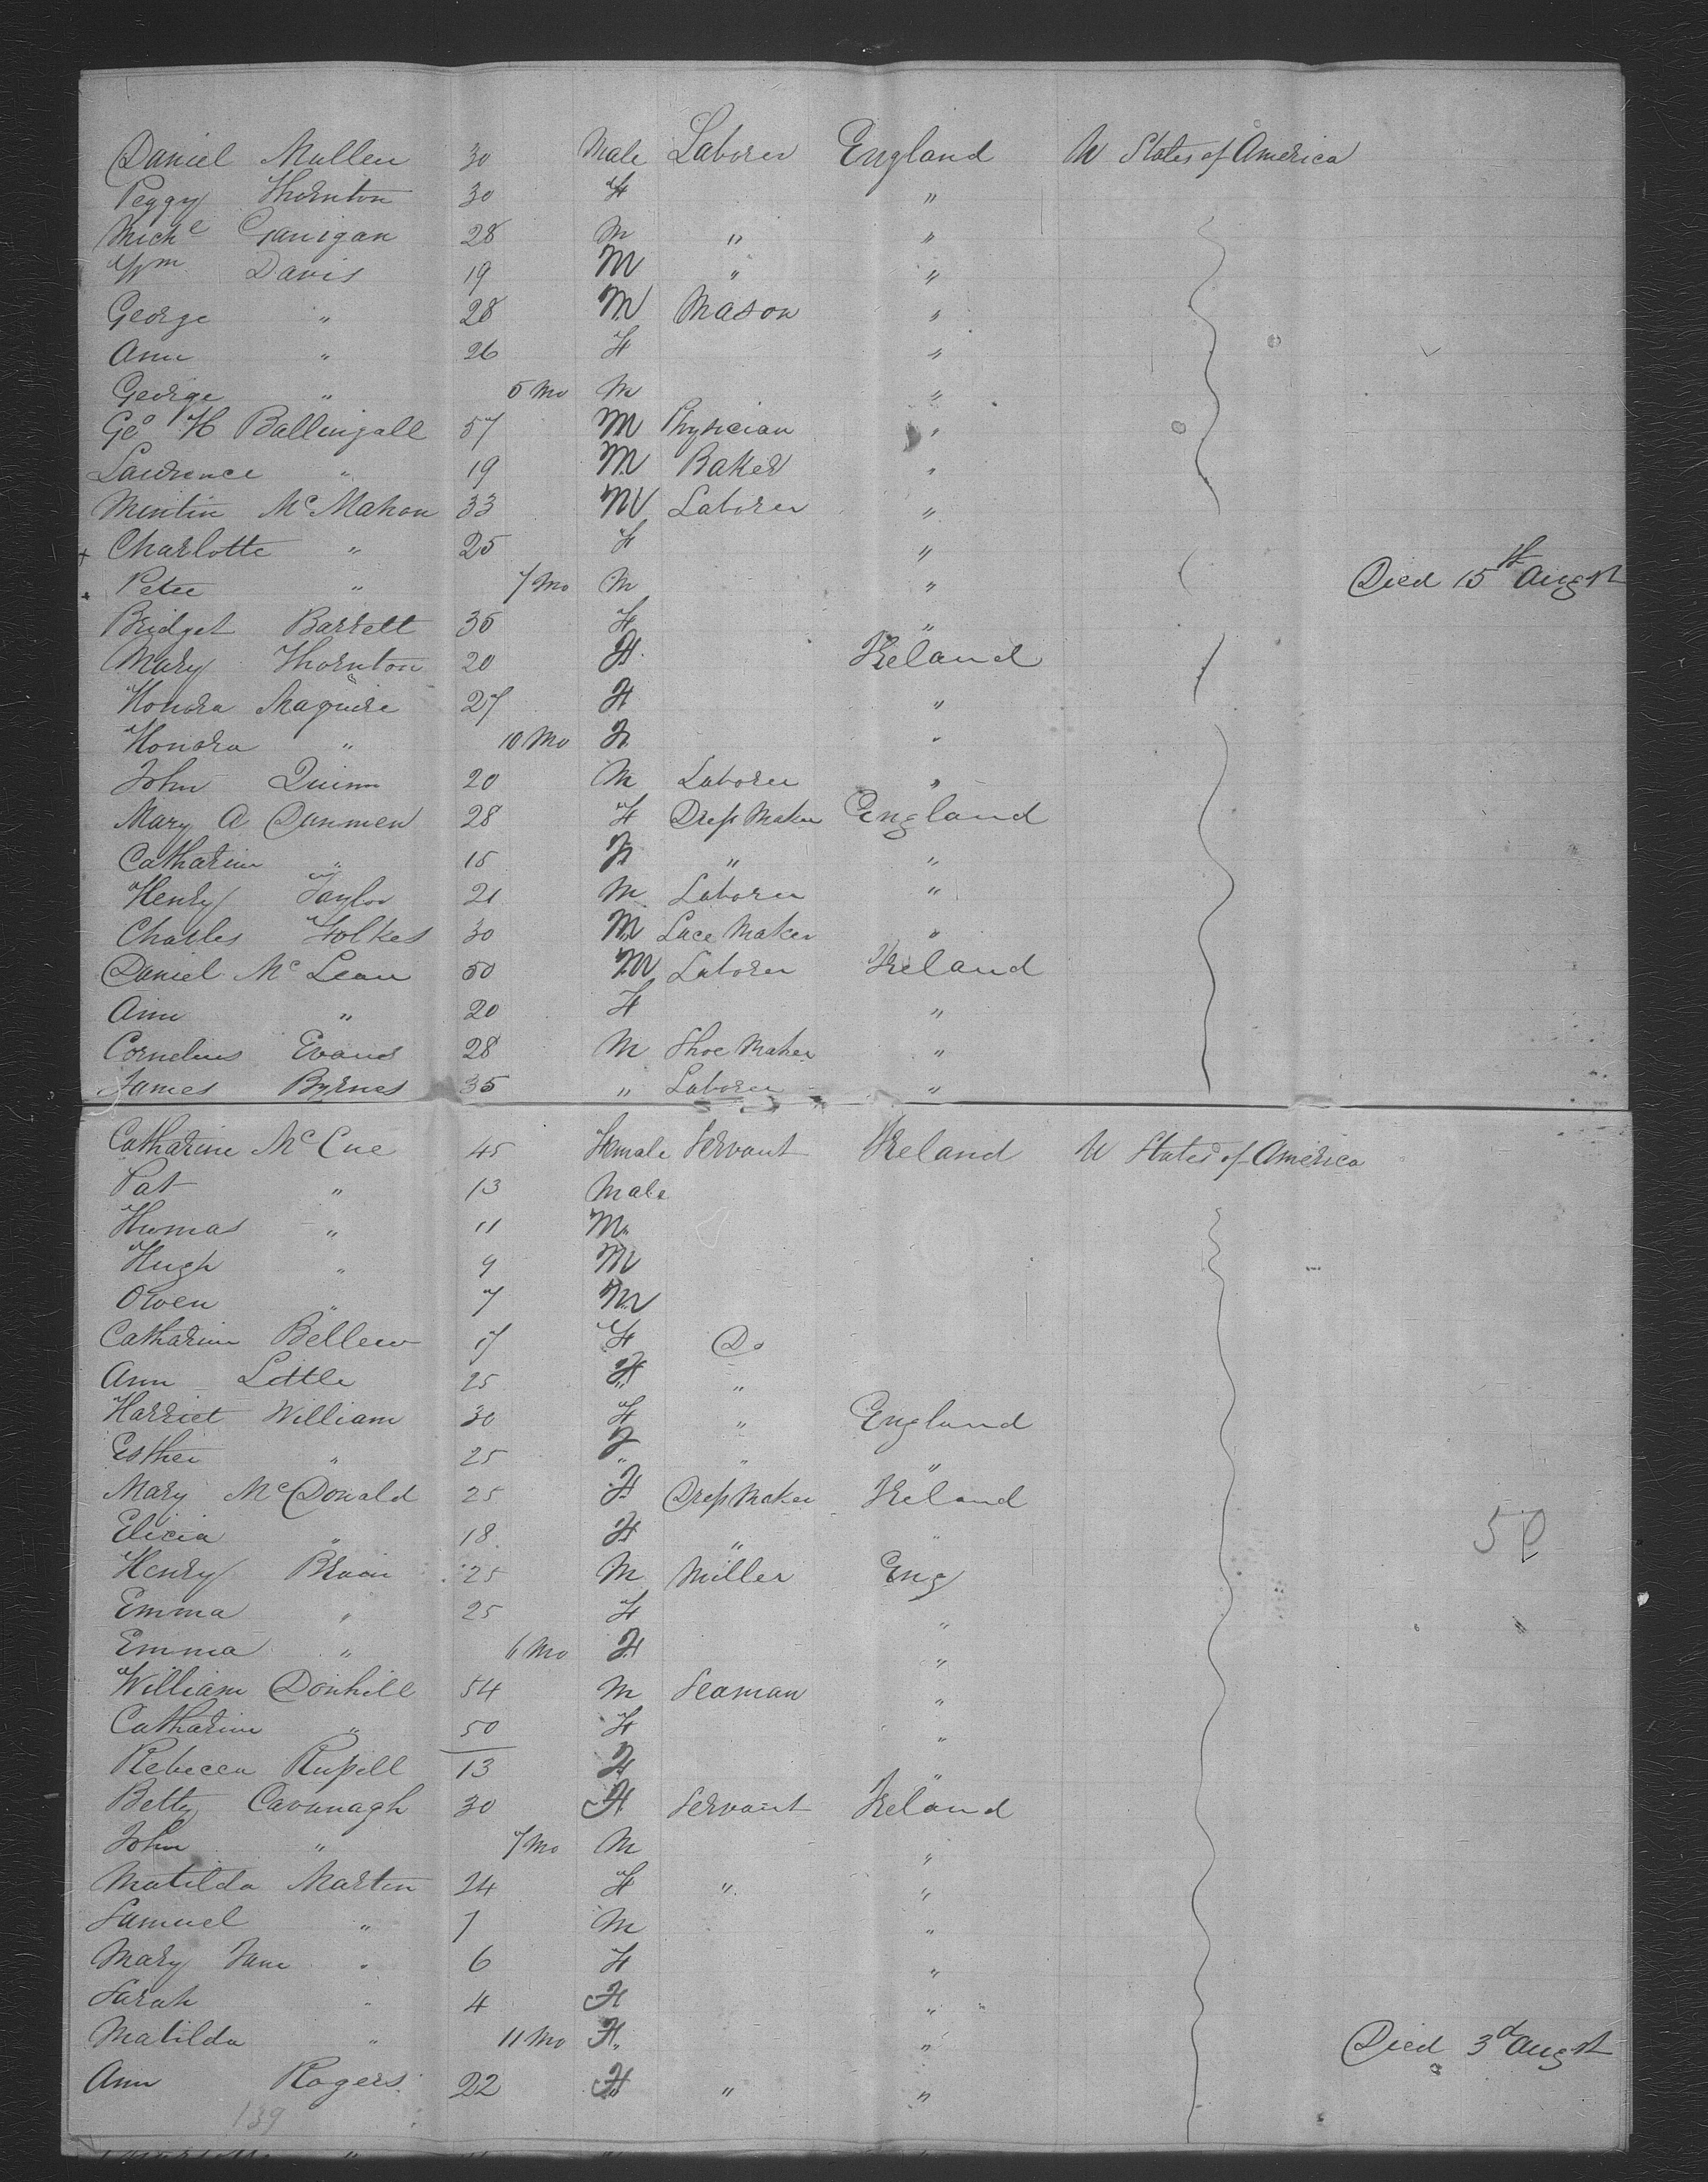 Daniel Mullen 30 Male Laborer England U States of America
Peggy Thornton 30 F "
Michl Ganigan 28 M " "
Wm Davis 19 M " "
George " 28 M Mason "
Ann " 26 F "
George " 5 Mo M "
Geo H Ballingall 57 M Physician "
Lawrence " 19 M Baker "
Mintin McMahon 33 M Laborer "
+ Charlotte " 25 F "
Peter " 7 Mo M " Died 15th Augst
Bridget Barrett 35 F "
Mary Thornton 20 F Ireland
Honora Maguire 27 F "
Honora " 10 Mo F "
John Quinn 20 M Laborer "
Mary A Dunmen 28 F Dress Maker England
Catharine " 15 F " "
Henry Taylor 21 M Laborer "
Charles Folkes 30 M Lace Maker "
Daniel McLean 50 M Laborer Ireland
Ann " 20 F "
Cornelius Evans 28 M Shoe Maker "
James Byrnes 35 " Laborer "
Catharine McCue 45 Female Servant Ireland U States of America
Pat " 13 Male
Thomas " 11 M
Hugh " 9 M
Owen " 7 M
Catharine Bellew 17 F Do
Ann Little 25 F "
Harriet William 30 F " England
Esther " 25 F " "
Mary McDonald 25 F Dress Maker Ireland
Elicia " 18 F " "
Henry 25 M Miller Eng
Emma " 25 F "
Emma " 6 Mo F "
William Donhill 54 M Seaman "
Catharine " 50 F "
Rebecca Russell 13 F "
Betty Cavanagh 30 F Servant Ireland
John " 7 Mo M "
Matilda Martin 24 F " "
Samuel " 7 M "
Mary Jane " 6 F "
Sarah " 4 F "
Matilda " 11 Mo F " Died 3d Augst
Ann Rogers 22 F " "
139